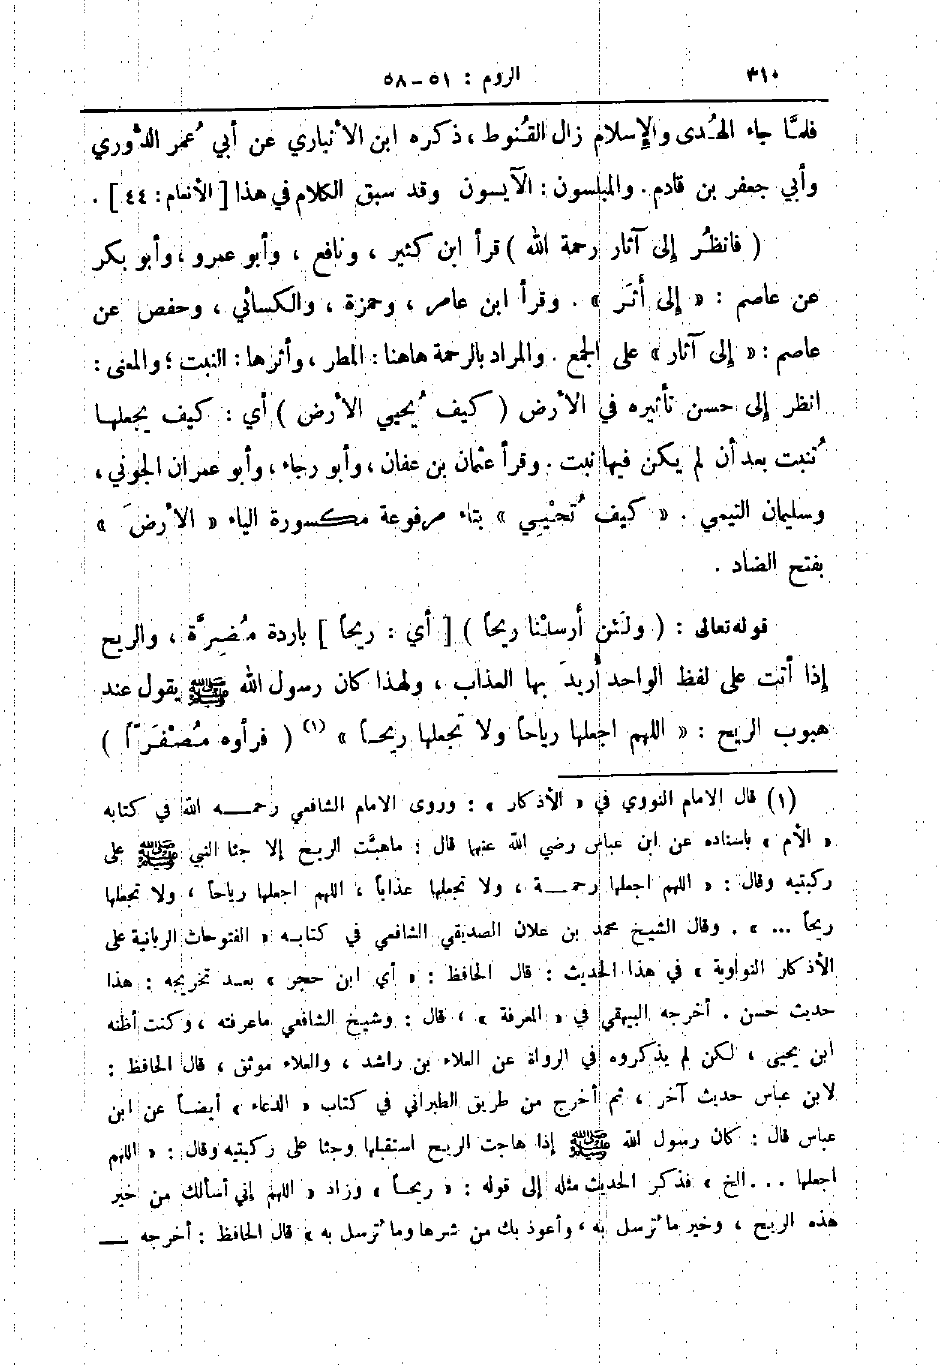 ٣١٠ الروم : ٥١ – ٥٨
فلمَّا جاء الهُدى والإسلام زال القُنوط ، ذكره ابن الأنباري عن أبي عُمر الدُّوري
وأبي جعفر بن قادم . والمبلسون : الآيسون وقد سبق الكلام في هذا [ الأنعام : ٤٤ ] .
( فانظُر إلى آثار رحمة الله ) قرأ ابن كثير ، ونافع ، وأبو عمرو ، وأبو بكر
عن عاصم : « إلى أثَر » . وقرأ ابن عامر ، وحمزة ، والكسائي ، وحفص عن
عاصم : « إلى آثار » على الجمع . والمراد بالرحمة هاهنا : المطر ، وأثرها : النبت ؛ والمعنى :
انظر إلى حسن تأثيره في الأرض ( كيف يُحيي الأرض ) أي : كيف يجعلها
تُنبت بعد أن لم يكن فيها نبت . وقرأ عثمان بن عفان ، وأبو رجاء ، وأبو عمران الجوني ،
وسليمان التيمي . « كيف تُحْيِي » بتاء مرفوعة مكسورة الياء « الأرضَ »
بفتح الضاد .
قوله تعالى : ( ولَئن أرسلْنا ريحاً ) [ أي : ريحاً ] باردة مُضِرَّة ، والريح
إذا أتت على لفظ الواحد أُريدَ بها العذاب ، ولهذا كان رسول الله ﷺ يقول عند
هبوب الريح : « اللهم اجعلها رياحاً ولا تجعلها ريحاً » (١) ( فرأوه مُصْفَرّاً )
(١) قال الامام النووي في « الأذكار » : وروى الامام الشافعي رحمه الله في كتابه
« الأم » باسناده عن ابن عباس رضي الله عنهما قال : ماهبَّت الريح إلا جثا النبي ﷺ على
ركبتيه وقال : « اللهم اجعلها رحمة ، ولا تجعلها عذاباً ، اللهم اجعلها رياحاً ، ولا تجعلها
ريحاً ... » . وقال الشيخ محمد بن علان الصديقي الشافعي في كتابه « الفتوحات الربانية على
الأذكار النواوية » في هذا الحديث : قال الحافظ : « أي ابن حجر » بعد تخريجه : هذا
حديث حسن . أخرجه البيهقي في « المعرفة » ، قال : وشيخ الشافعي ماعرفته ، وكنت أظنه
ابن يحيى ، لكن لم يذكروه في الرواة عن العلاء بن راشد ، والعلاء موثق ، قال الحافظ :
لابن عباس حديث آخر ، ثم أخرج من طريق الطبراني في كتاب « الدعاء » أيضاً عن ابن
عباس قال : كان رسول الله ﷺ إذا هاجت الريح استقبلها وجثا على ركبتيه وقال : « اللهم
اجعلها ... الخ » فذكر الحديث مثله إلى قوله : « ريحاً » وزاد « اللهم إني أسألك من خير
هذه الريح ، وخير ما تُرسل به ، وأعوذ بك من شرها وما تُرسل به » قال الحافظ : أخرجه —